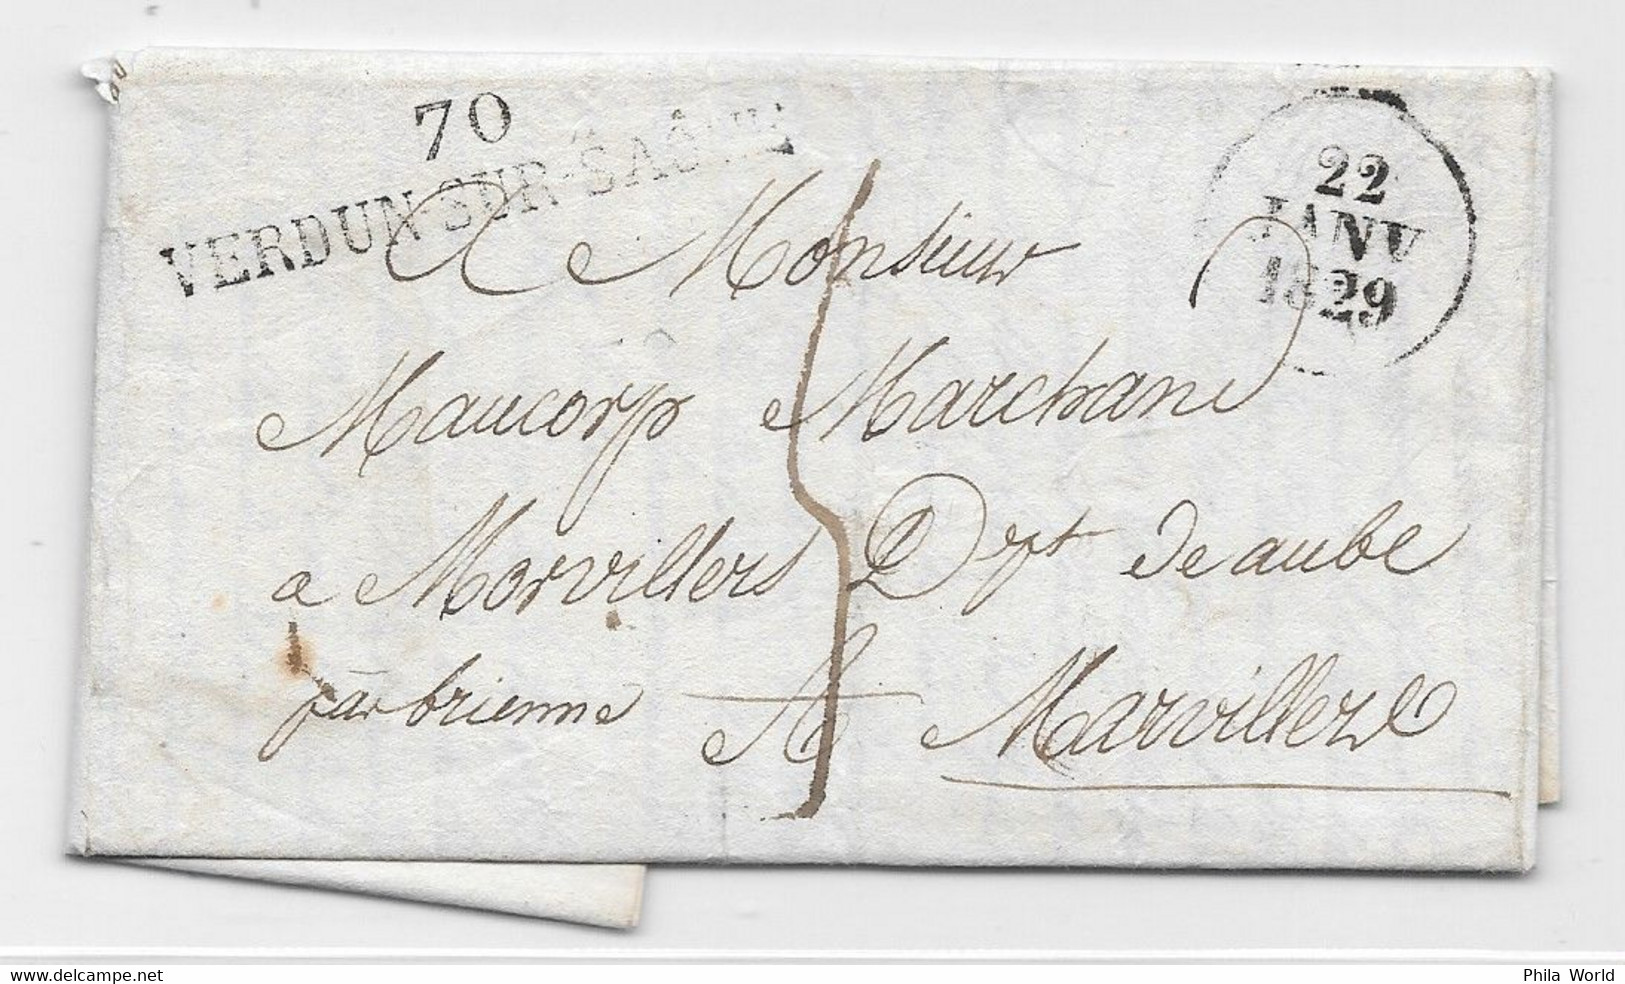 70
VERDUN-SUR-SAÔNE
22
JANV
1829
A Monsieur
Maucorp Marchand
a Morvillers Dpt de aube
par brienne A Marvillers
Phila World